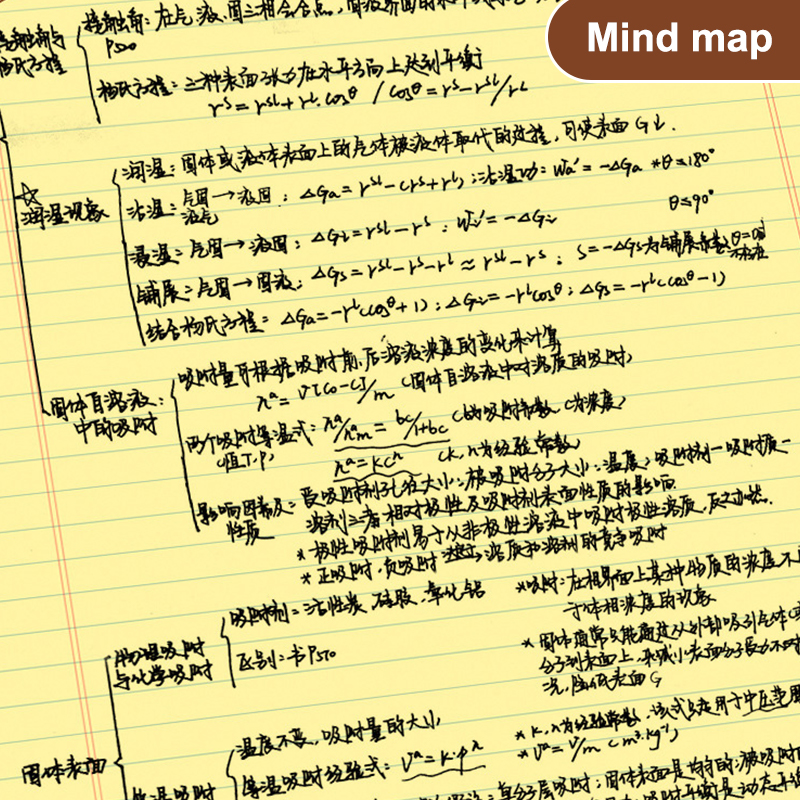 Mind map
接触角与
杨氏方程
接触角：在气、液、固三相会合点，固液界面的
P520
杨氏方程：三种表面张力在水平方向上达到平衡
rˢ = rˢᴸ + rᴸ·cosθ / cosθ = rˢ - rˢᴸ / rᴸ
☆
润湿现象
润湿：固体或液体表面上的气体被液体取代的过程，可使表面G↓.
沾湿：气固→液固：ΔGa = rˢᴸ - (rˢ + rᴸ)；沾湿功：Wa' = -ΔGa *θ≤180°
液气
浸湿：气固→液固：ΔGi = rˢᴸ - rˢ；Wi' = -ΔGi θ≤90°
铺展：气固→固液：ΔGs = rˢᴸ - rˢ - rᴸ ≈ rˢᴸ - rˢ；S = -ΔGs为铺展系数；θ=0或
不存在
结合杨氏方程：ΔGa = -rᴸ(cosθ+1)；ΔGi = -rᴸcosθ；ΔGs = -rᴸ(cosθ-1)
固体自溶液
中的吸附
吸附量可根据吸附前、后溶液浓度的变化来计算
nᵃ = V(c₀-c)/m (固体自溶液中对溶质的吸附)
两个吸附等温式：nᵃ/nᵃm = bc/1+bc (b为吸附系数 c为浓度)
(恒T.P)
nᵃ = kcⁿ (k, n为经验常数)
影响因素及
性质
受吸附剂孔径大小；被吸附分子大小；温度；吸附剂-吸附质-
溶剂三者相对极性及吸附剂表面性质的影响
* 极性吸附剂易于从非极性溶液中吸附极性溶质，反之亦然.
* 正吸附，负吸附 溶质和溶剂的竞争吸附
物理吸附
与化学吸附
吸附剂：活性炭、硅胶、氧化铝
区别：书P570
*吸附：在相界面上某种物质的浓度不同
于体相浓度的现象
* 固体通常只能通过从外部吸引气体
分子到表面上，来减小表面分子受力不对
况，降低表面G
固体表面
温度不变，吸附量的大小
等温吸附经验式：Vᵃ = k·pⁿ
* k, n为经验常数，该式只适用于中压范围
* Vᵃ = V/m (m³·kg⁻¹)
单分子层吸附；固体表面是均匀的；被吸附
吸附平衡是动态平衡